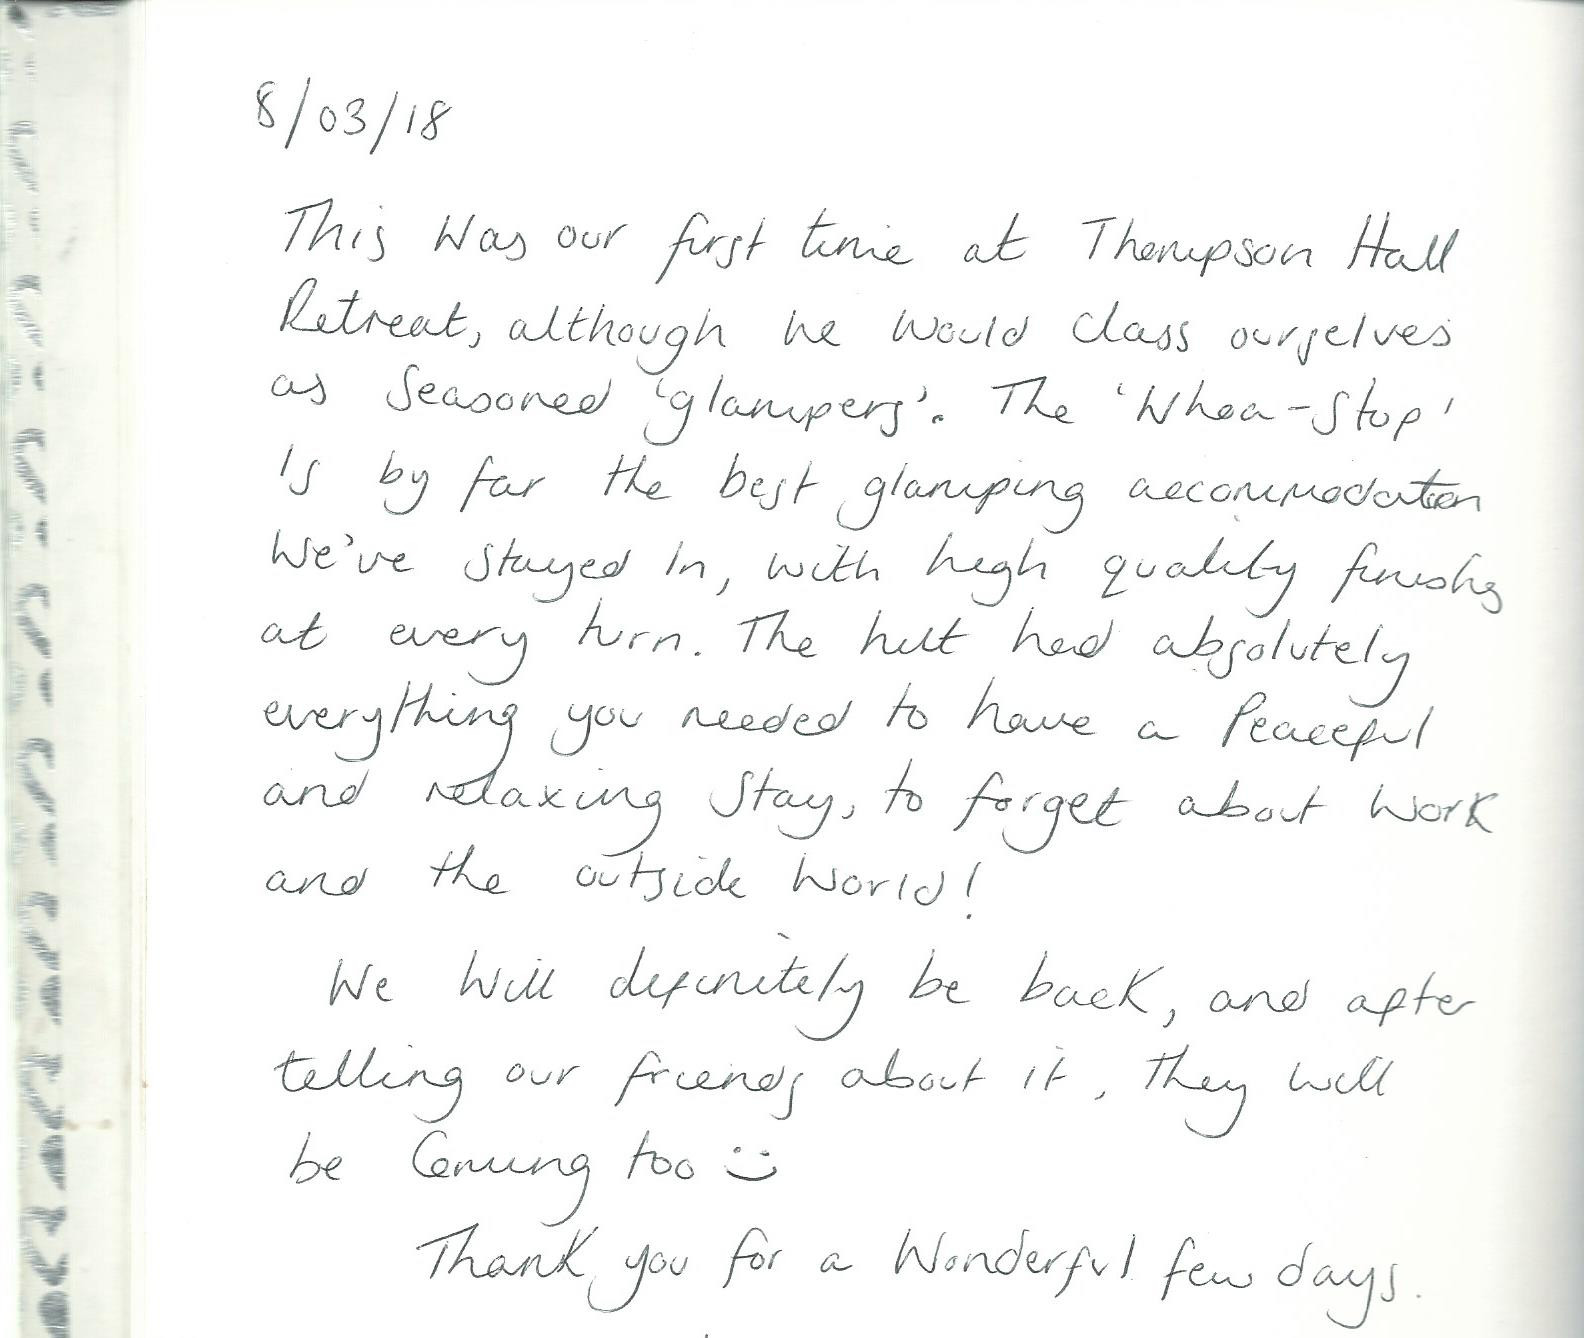 8/03/18
This was our first time at Thompson Hall
Retreat, although we would class ourselves
as seasoned 'glampers'. The 'Whoa-Stop'
is by far the best glamping accommodation
we've stayed in, with high quality finishes
at every turn. The hut had absolutely
everything you needed to have a peaceful
and relaxing stay, to forget about work
and the outside world!
We will definitely be back, and after
telling our friends about it, they will
be coming too :)
Thank you for a wonderful few days.